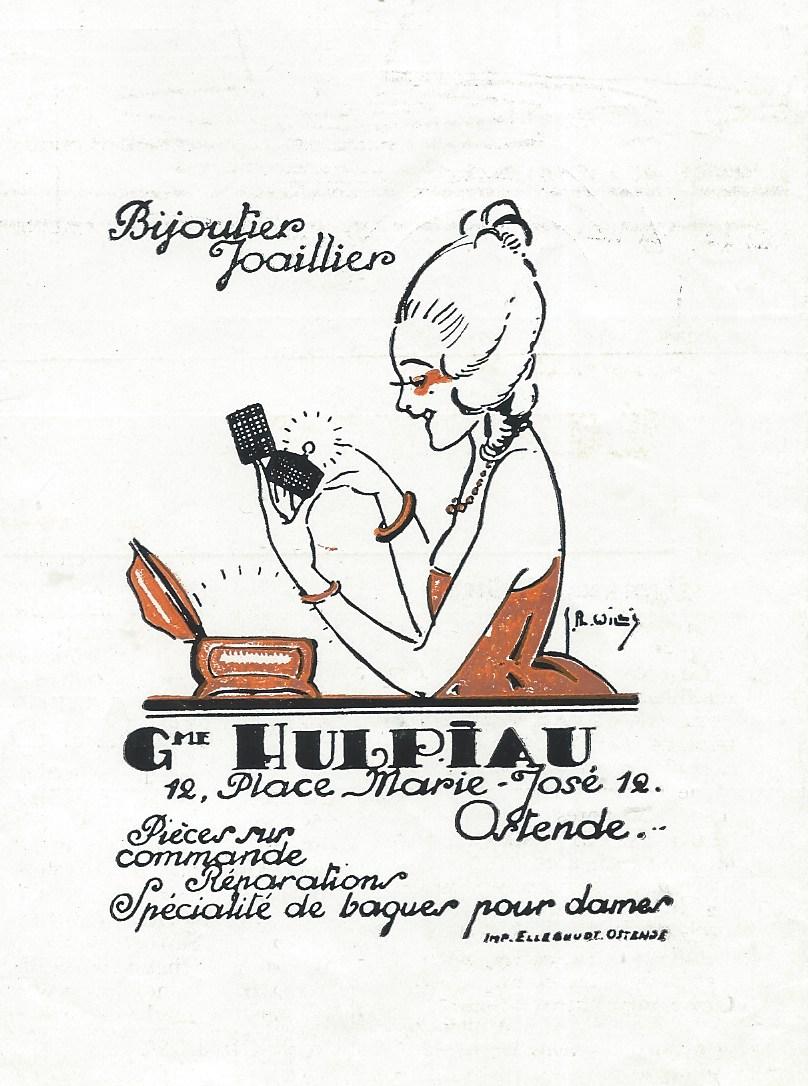 Bijoutier
Joaillier
GME HULPIAU
12, Place Marie-José 12.
Ostende...
Pièces sur
commande
Réparations
Spécialité de bagues pour dames